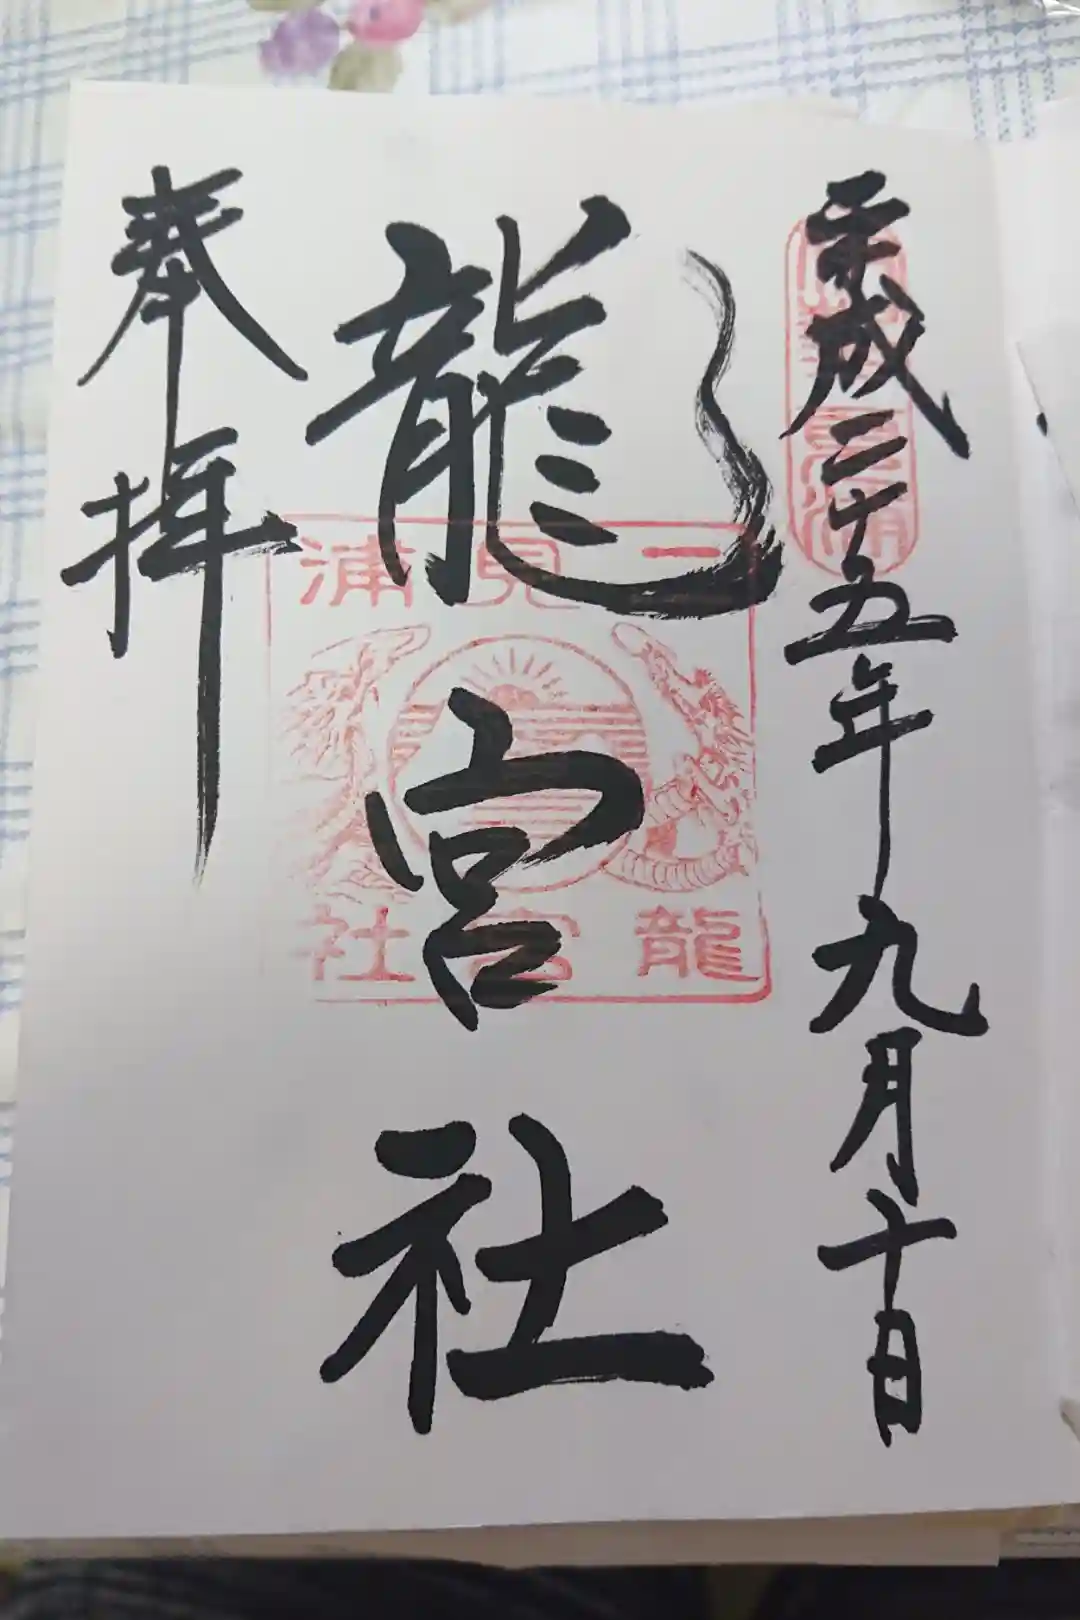 平成二十五年九月十日
龍宮社
奉拝
二見浦
龍宮社